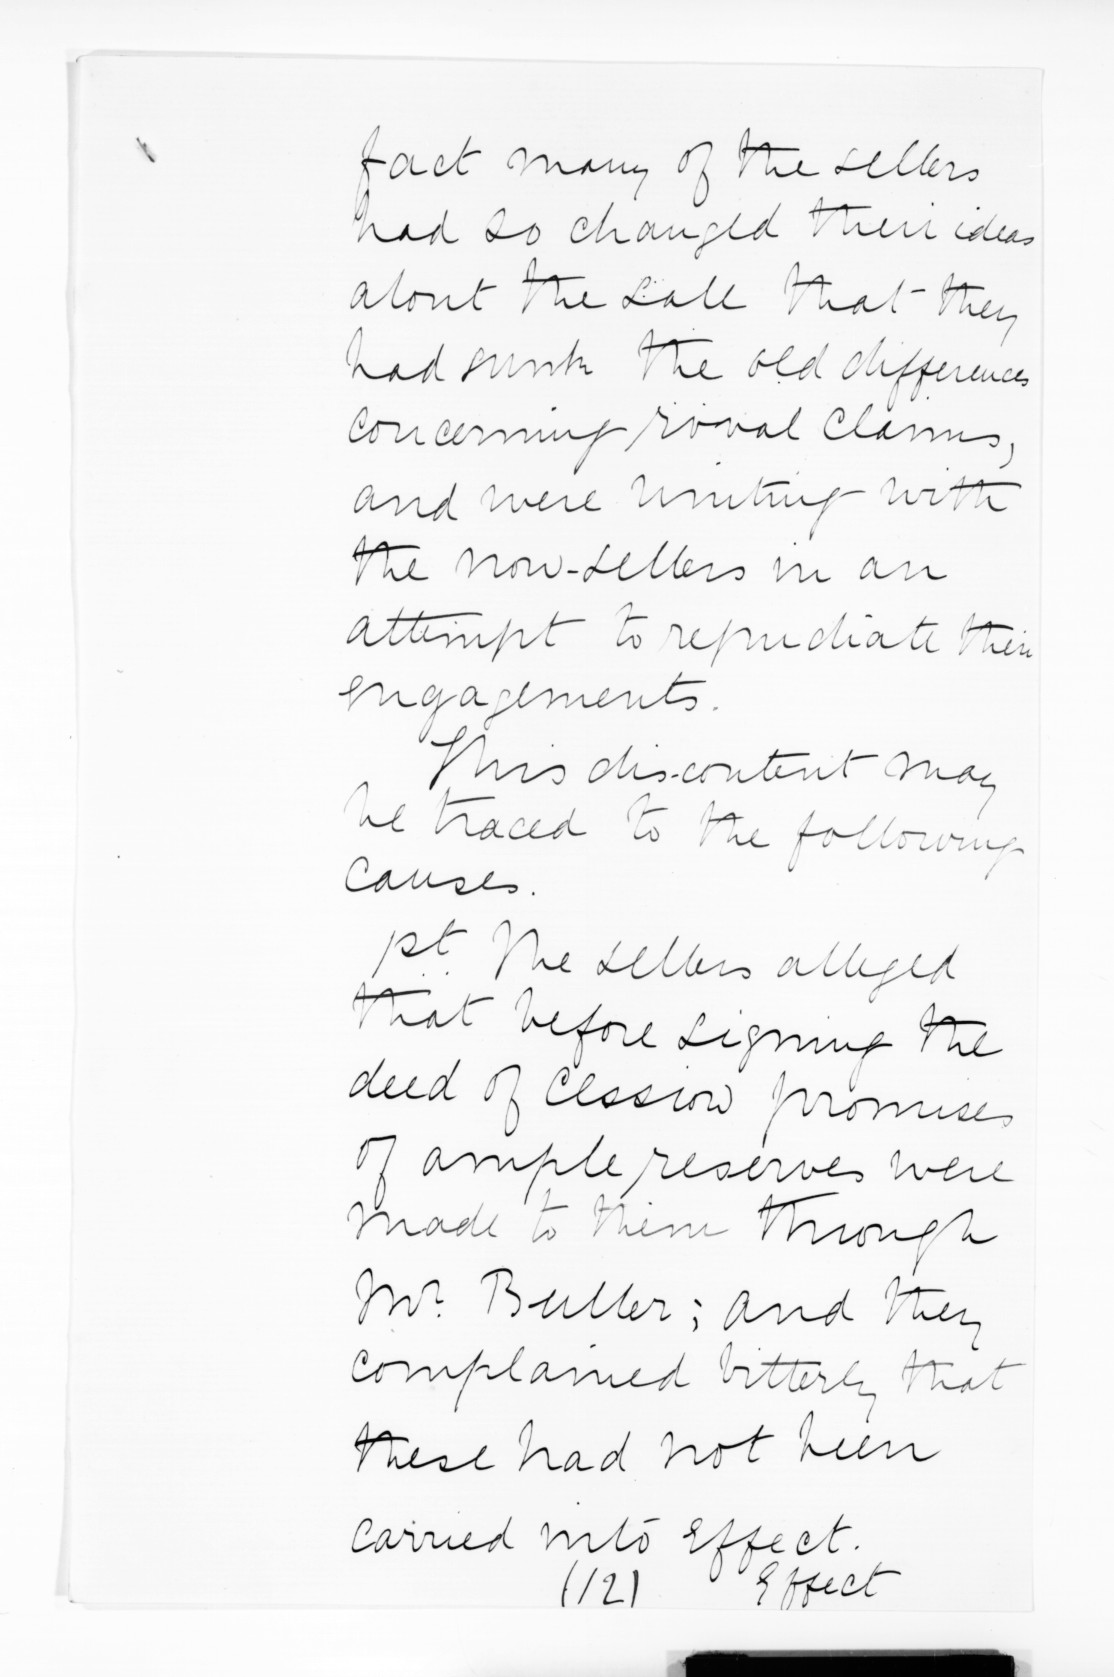 fact many of the sellers
had so changed their ideas
about the sale that they
had sunk the old differences
concerning rival claims,
and were uniting with
the non-sellers in an
attempt to repudiate their
engagements.
This dis-content may
be traced to the following
causes.
1st. The sellers alleged
that before signing the
deed of Cession promises
of ample reserves were
made to them through
Mr. Buller; and they
complained bitterly that
these had not been
carried into effect.
(12) Effect